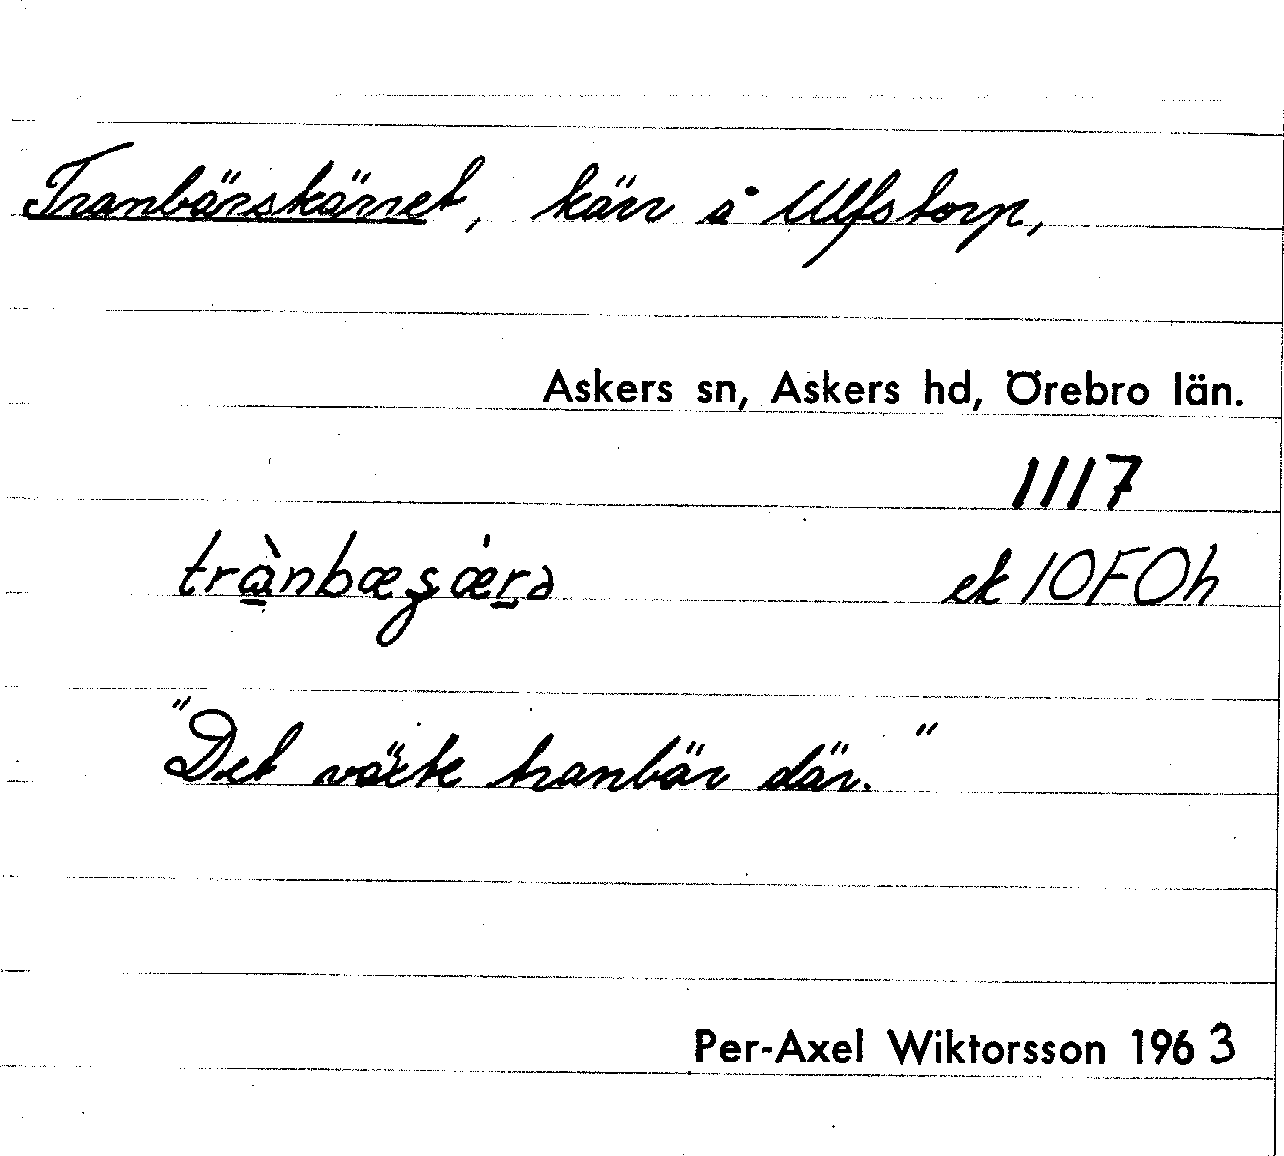 Tranbärskärret, kärr å Ulfstorp,
Askers sn, Askers hd, Örebro län.
1117
ek 10F0h
"Det växte tranbär där."
Per-Axel Wiktorsson 1963